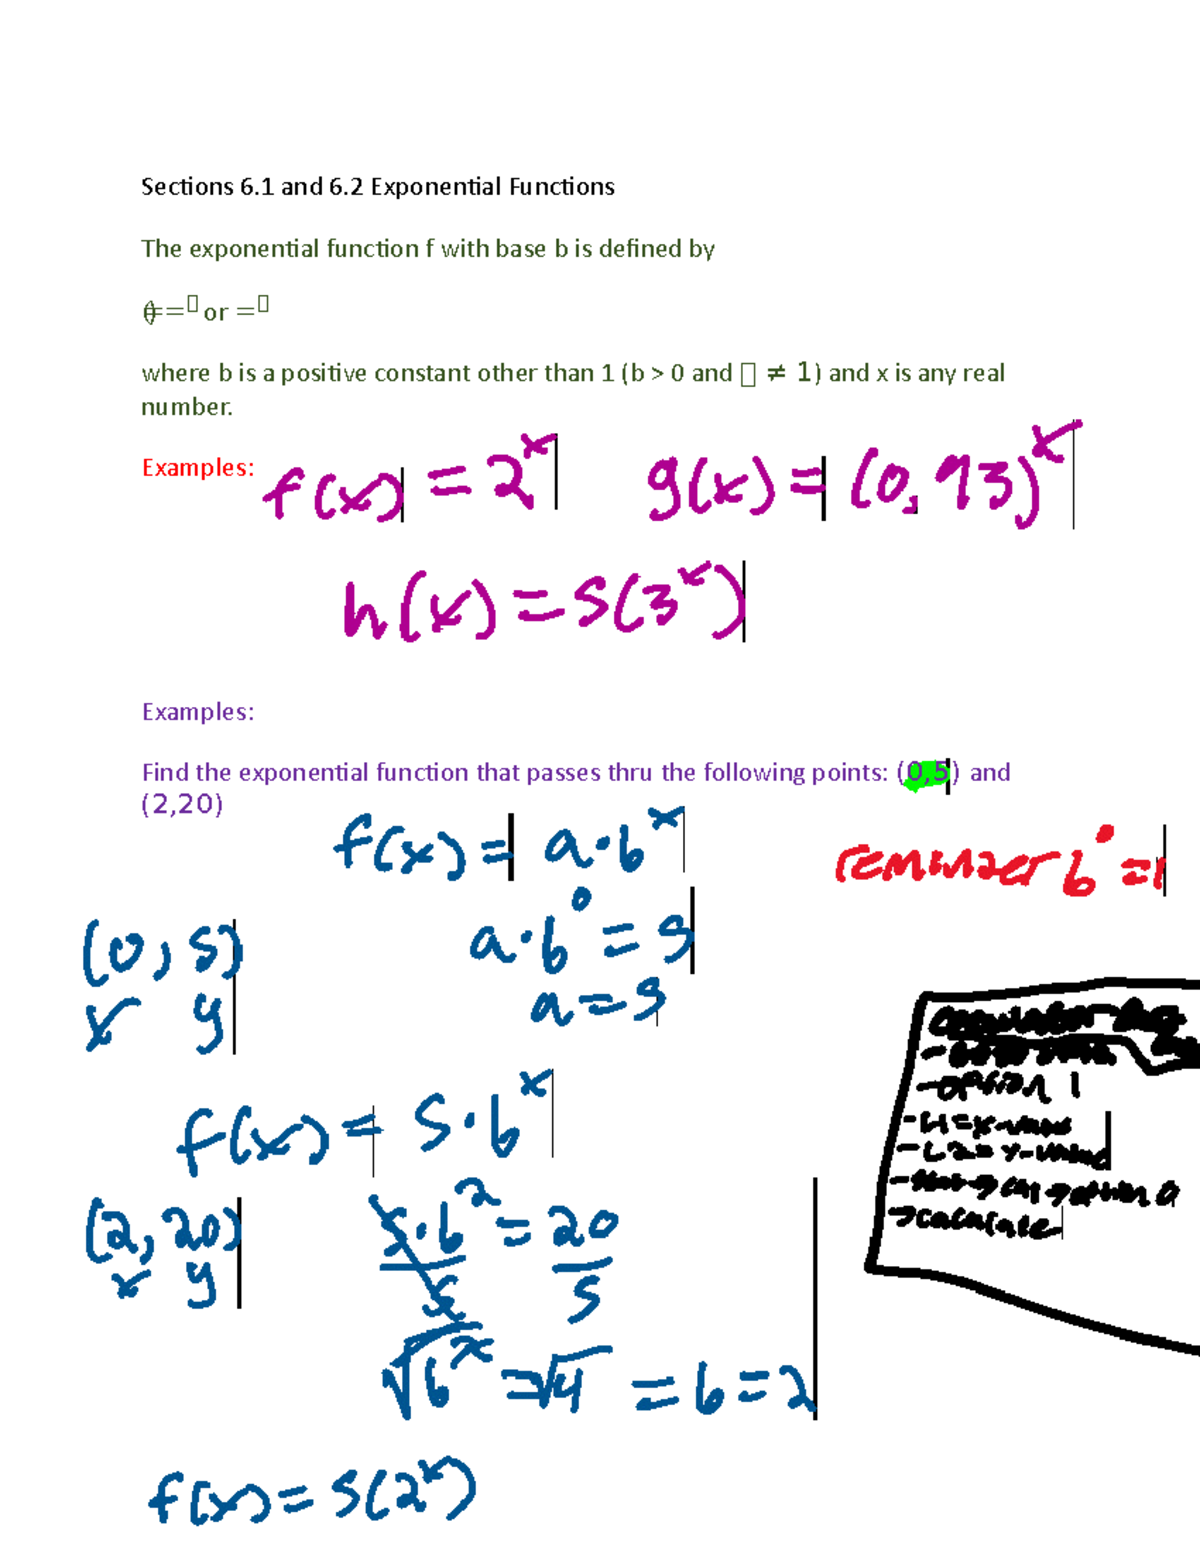 Sections 6.1 and 6.2 Exponential Functions
The exponential function f with base b is defined by
()==▯ or =▯
where b is a positive constant other than 1 (b > 0 and ▯ ≠ 1) and x is any real
number.
Examples:
f(x) = 2^x g(x) = (0,93)^x
h(x) = 5(3^x)
Examples:
Find the exponential function that passes thru the following points: (0,5) and
(2,20)
f(x) = a·b^x
reminder b^0 = 1
(0, 5) a·b^0 = 5
x y a = 5
f(x) = 5·b^x
- option 1
- L1 = x-value
- L2 = y-value
→ calculate
(2, 20) 5·b^2 = 20
x y 5 5
√b^x = √4 = b = 2
f(x) = 5(2^x)